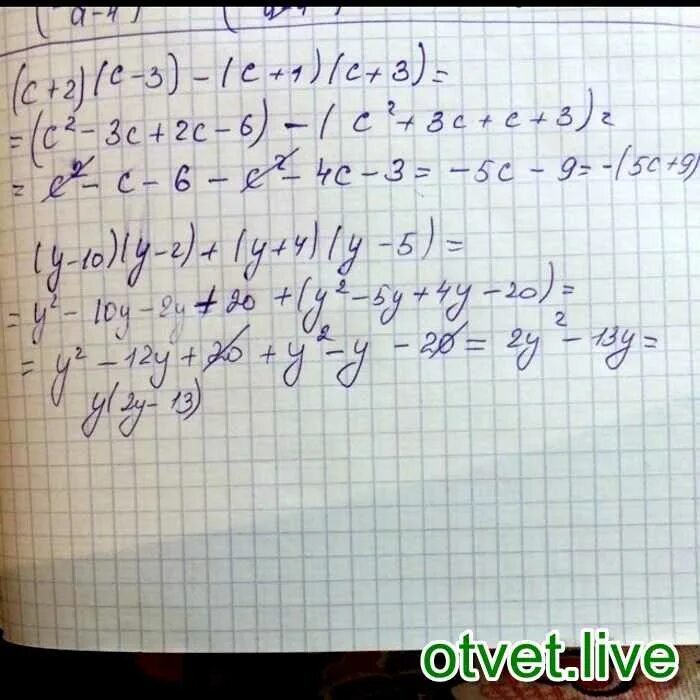 (c+2)(c-3)-(c+1)(c+3)=
=(c²-3c+2c-6)-(c²+3c+c+3)=
=c²-c-6-c²-4c-3=-5c-9=-(5c+9)
(y-10)(y-2)+(y+4)(y-5)=
=y²-10y-2y+20+(y²-5y+4y-20)=
=y²-12y+20+y²-y-20=2y²-13y=
y(2y-13)
otvet.live